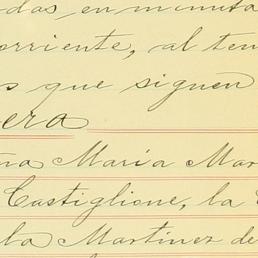 das, en minuta
orriente, al ten
s que siguen
era
ña María Mar
Castiglione, la
la Martinez de